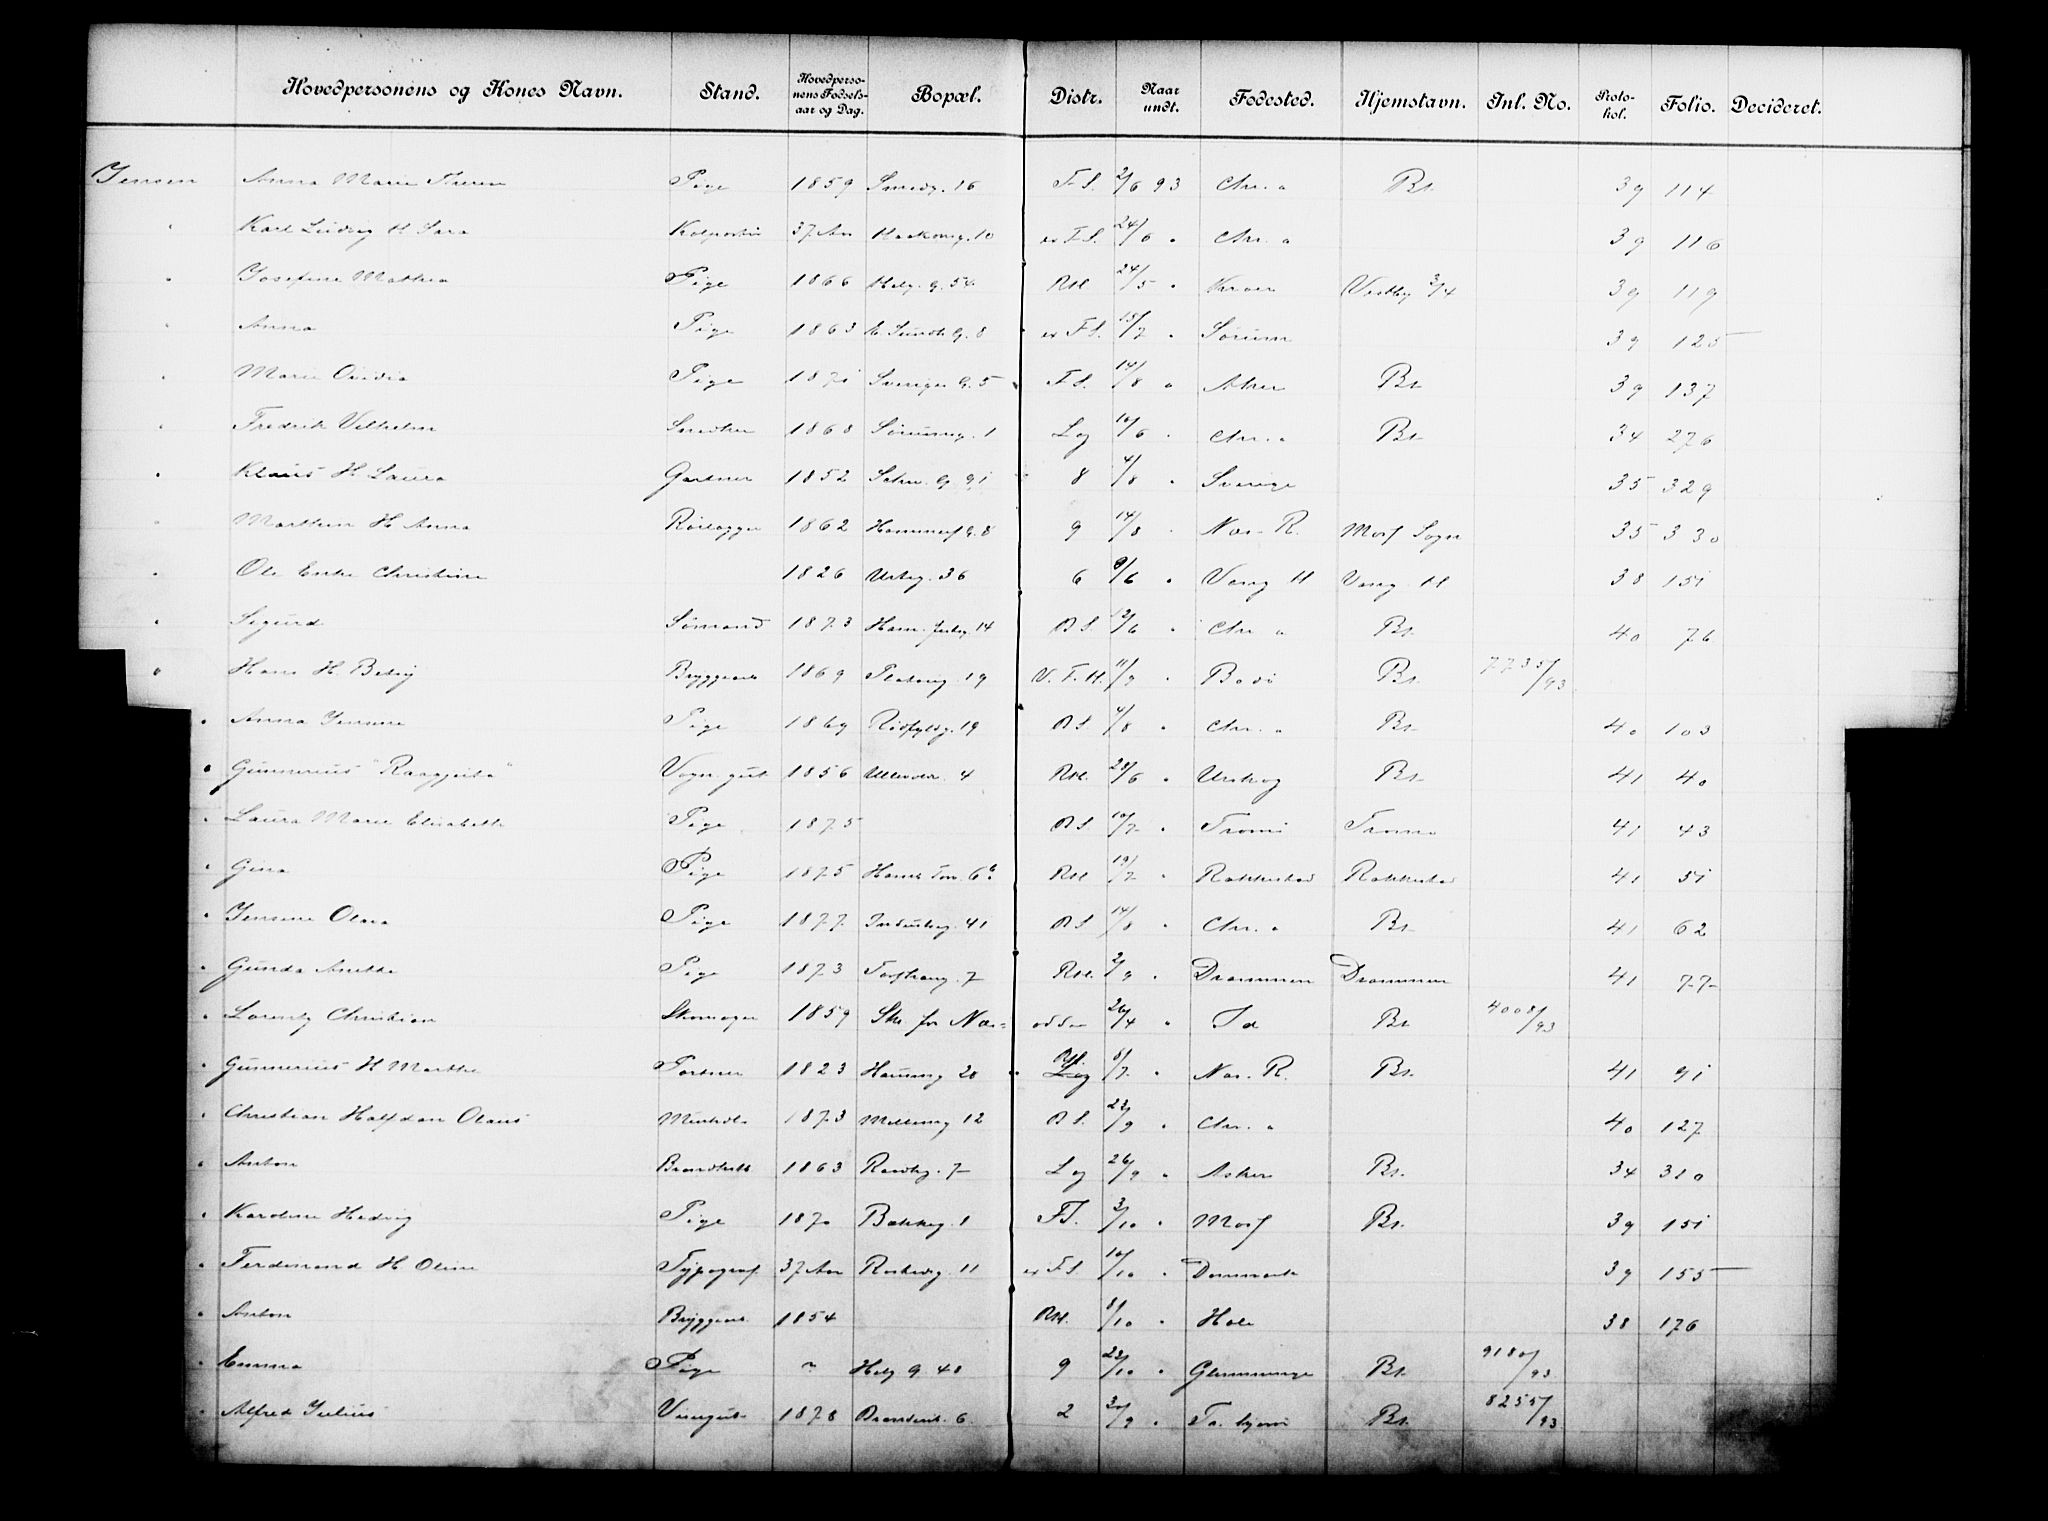 Hovedpersonens og Kones Navn. Stand. Hovedperso-nens Fødsels-aar og Dag. Bopæl. Distr. Naar undt. Fødested. Hjemstavn. Inl. No. Proto-kol. Folio. Decideret.
Jensen Anna Marie Therese Pige 1859 Smedg. 16 F.S. 2/6 93 Chr.a Bt. 39 114
" Karl Ludvig H Sara 37 Aar Haakonsg. 10 ex F.S. 24/6 " Chr.a 39 116
" Josefine Mathea Pige 1866 Helg. G. 54 RH 24/5 " Kraer Vestby 3/4 39 119
" Anna Pige 1863 E Sundts G. 8 ex F.S. 15/7 " Sørum 39 125
" Marie Ovidia Pige 1871 Sveriges G. 5 F.S. 14/8 " Asker Bt. 39 137
" Fredrik Vilhelm Snedker 1868 Sørumsg. 1 Lg 10/6 " Chr.a Bt. 34 276
" Klaus H Laura Gartner 1852 Schw. G. 91 8 4/8 " Sverige 35 329
" Marthin H Anna Rørlægger 1862 Hammerf G. 8 9 14/8 " Næs R. Moss Sogn 35 330
" Ole Enke Christine 1826 Urteg. 36 6 9/6 " Vang H Vang H 38 151
" Sigurd Sømand 1873 14 B.S. 12/6 " Chr.a Bt. 40 76
" Hans H. Betsy Bryggearb 1869 Platoug. 19 V.F.H. 11/9 " Bodø Bt. 7735/93
" Anna Jensine Pige 1869 19 B.S. 4/8 " Chr.a Bt. 40 103
" Gunnerius "Raagjeita" Vogn.gut 1856 Ullevolsv. 4 RH. 28/6 " Urskog Bt. 41 40
" Laura Marie Elisabeth Pige 1875 B.S. 10/7 " Tromø Tromø 41 43
" Gina Pige 1875 Hans Torv. 6 RH 19/7 " Rakkestad Rakkestad 41 51
" Jensine Olava Pige 1877 Industrig. 41 B.S 14/8 " Chr.a Bt. 41 62
" Gunda Anette Pige 1873 7 RH. 2/9 " Drammen Drammen 41 77
" Lorentz Christian Skomager 1859 Sk. fra Næs-odden 26/4 " Id Bt 4008/93
" Gunnerius H Marthe Portner 1823 Hausmg 20 RH. 8/7 " Næs. R. Bt. 41 91
" Christian Halfdan Olaus 1873 Møllerg 12 B.S. 23/9 " Chr.a 40 127
" Anton 1863 7 Lg 26/9 " Asker Bt. 34 310
" Karoline Hedvig Pige 1870 Bakkeg. 1 F.S. 3/10 " Moss Bt. 39 151
" Ferdinand H Oline Typograf 37 Aar 11 ex F.S. 10/10 " Danmark 39 155
" Anton Bryggearb 1854 RH. 8/10 " Hole 38 176
" Emma Pige " Helg G. 48 9 23/10 " Glemminge Bt. 9180/93
" Alfred Julius Visergut 1878 6 2 30/9 " Bt. 8255/93